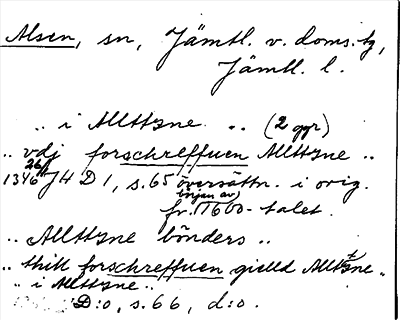 Alsen, sn, Jämtl. v. doms. tg,
Jämtl. l.
.. i Allstzne .. (2 ggr)
.. vdj forschreffuen Allstzne ..
1346 26/1 JHD 1, s. 65 översättn. i orig.
fr. början av 1600-talet.
.. Allstzne bönders ..
.. thitt forschreffuen gielld Allstzne ..
.. i Allstzne ..
D:o, s. 66, d:o.